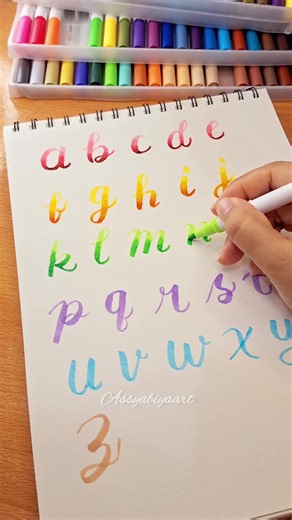 a b c d e
f g h i j
k l m n
p q r s t
u v w x y
Assyabiyaart
z